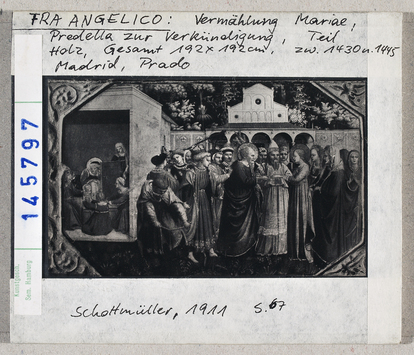 FRA ANGELICO: Vermählung Mariae,
Predella zur Verkündigung, Teil
Holz, Gesamt 192x192cm, zw. 1430 u. 1445
Madrid, Prado
145797
Kunstgesch.
Sem. Hamburg
Schottmüller, 1911 S. 67